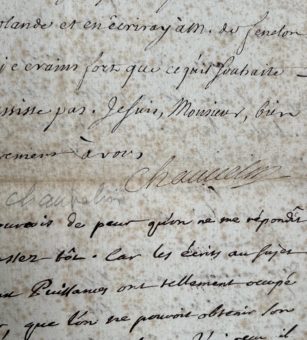 olande et en ecriray à M. de fenelon
je crains fort que ce qu'il souhaite
ssisse pas. Je suis, Monsieur, bien
rement à vous
Chauvelin
chauvelin
ouvais de peur qu'on ne me répondît
assez tôt. Car les écrits au sujet
Puissances ont tellement occupé
que l'on ne pouvoit obtenir son
il